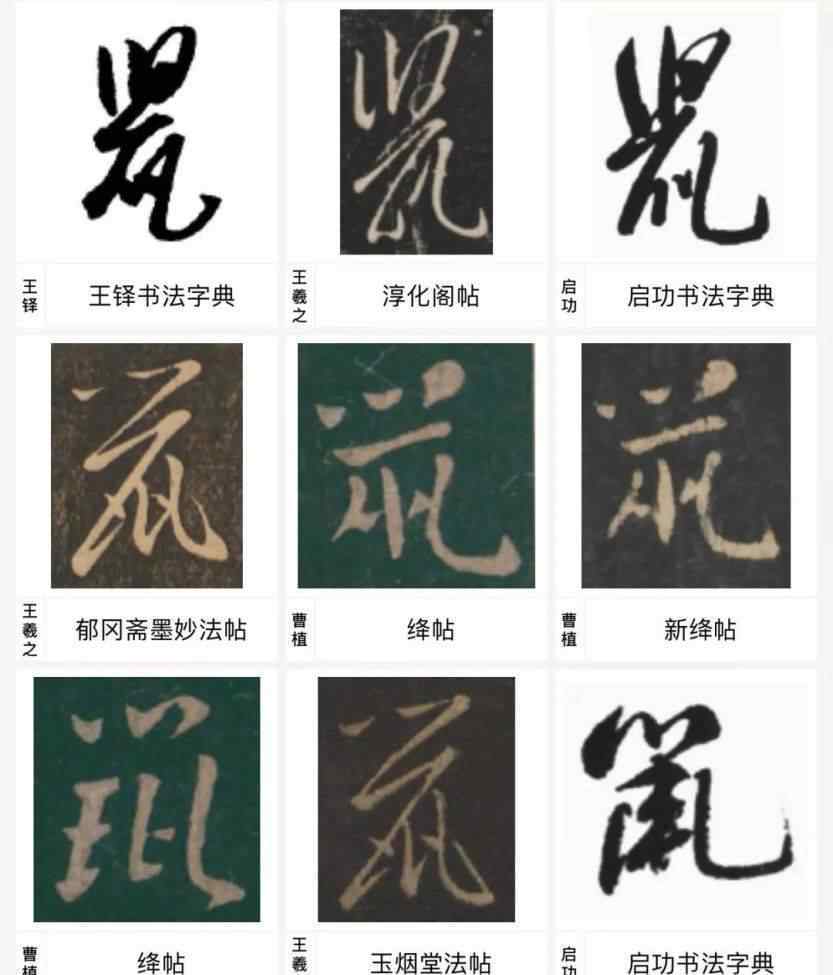 鼠 鼠 鼠
王铎 王铎书法字典 王羲之 淳化阁帖 启功 启功书法字典
鼠 鼠 鼠
王羲之 郁冈斋墨妙法帖 曹植 绛帖 曹植 新绛帖
鼠 鼠 鼠
曹植 绛帖 王羲 玉烟堂法帖 启功 启功书法字典